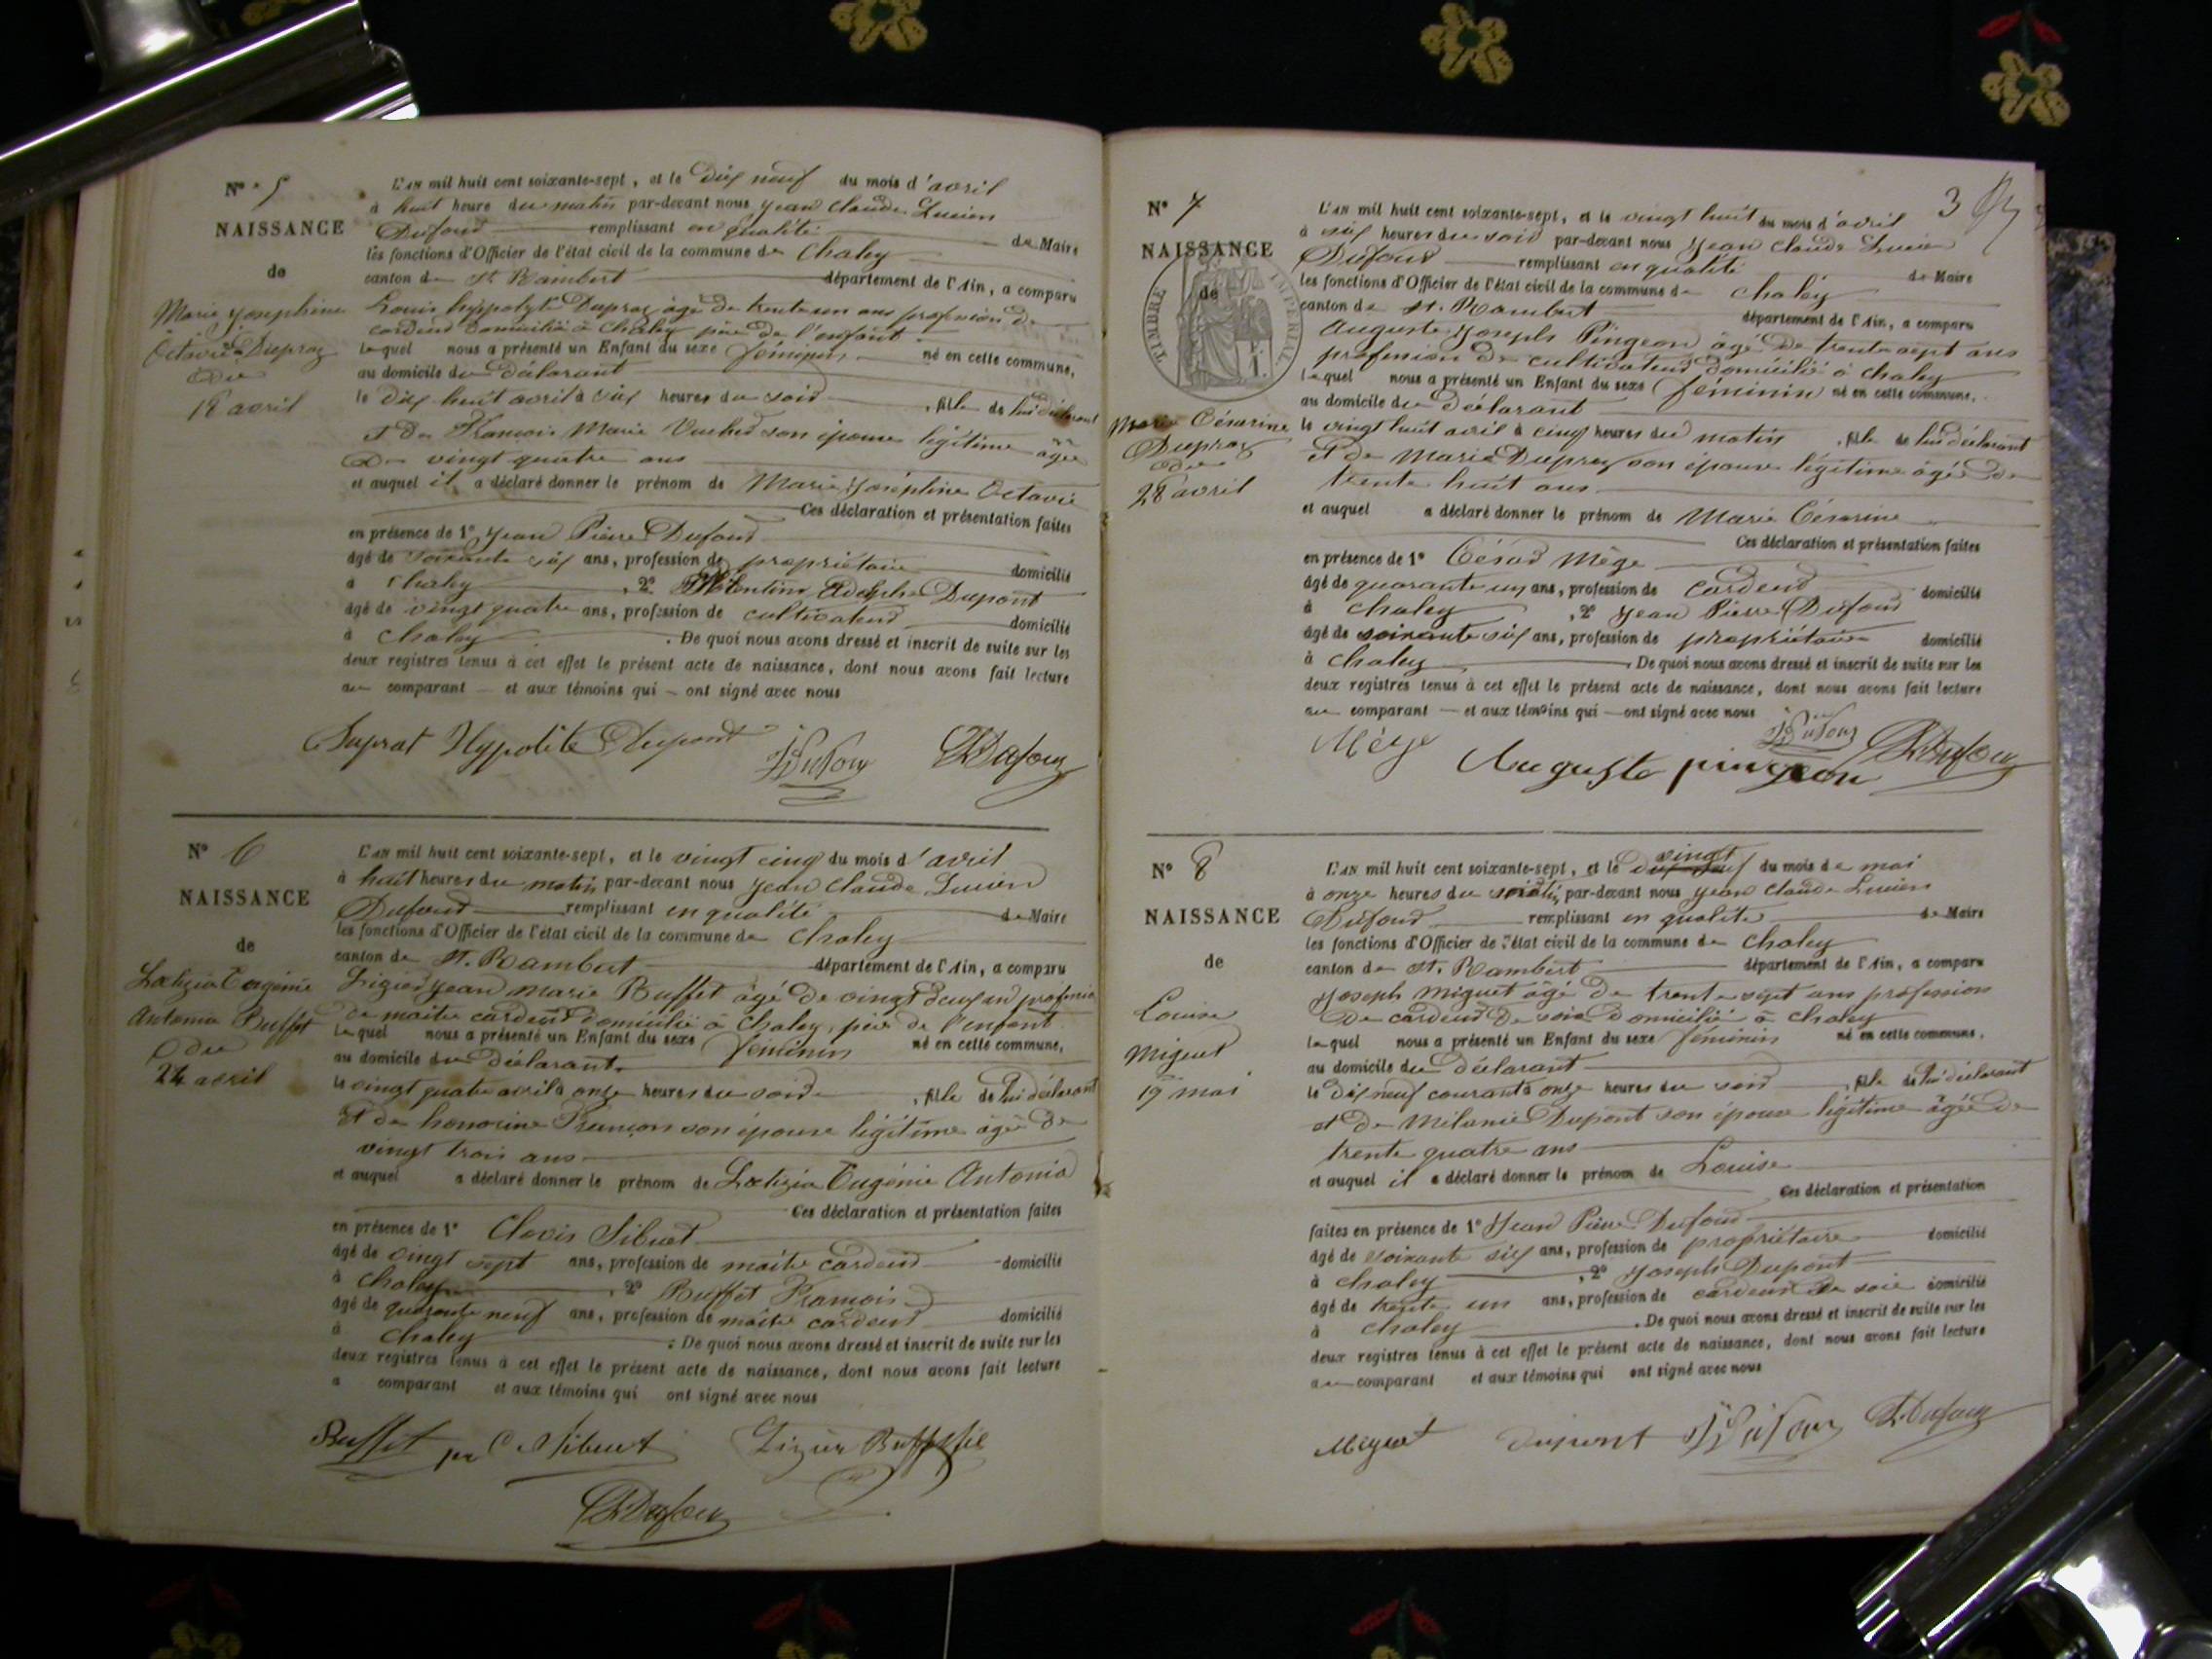 N° 5
NAISSANCE
de
Marie Josephine
Octavie Dupraz
Du
18 avril
L'AN mil huit cent soixante-sept, et le Dix neuf du mois d'avril
à huit heure du matin par-devant nous Jean Claude Lucien
Dufour remplissant en qualité de Maire
les fonctions d'Officier de l'état civil de la commune de Chaley
canton de St Rambert département de l'Ain, a comparu
Louis hyppolyte Dupraz âgé de trente un ans profession de
cardeur domicilié à Chaley père de l'enfant
lequel nous a présenté un Enfant du sexe féminin né en cette commune,
au domicile du Déclarant
le Dix huit avril à six heures du soir, fille de lui déclarant
et de François Marie Vuchet son épouse légitime âgée
de vingt quatre ans
et auquel il a déclaré donner le prénom de Marie Joséphine Octavie
Ces déclaration et présentation faites
en présence de 1° Jean Pierre Dufour
âgé de soixante six ans, profession de propriétaire domicilié
à Chaley, 2° Adolphe Dupont
âgé de vingt quatre ans, profession de cultivateur domicilié
à Chaley. De quoi nous avons dressé et inscrit de suite sur les
deux registres tenus à cet effet le présent acte de naissance, dont nous avons fait lecture
au comparant et aux témoins qui ont signé avec nous
Duprat Hypolite Dupont JP Dufour L Dufour
N° 6
NAISSANCE
de
Lætizia Eugénie
Antonia Buffet
du
24 avril
L'AN mil huit cent soixante-sept, et le vingt cinq du mois d'avril
à huit heures du matin par-devant nous Jean Claude Lucien
Dufour remplissant en qualité de Maire
les fonctions d'Officier de l'état civil de la commune de Chaley
canton de St. Rambert département de l'Ain, a comparu
Ligier Jean Marie Buffet âgé de vingt deux an profession
de maître cardeur domicilié à Chaley, père de l'enfant
lequel nous a présenté un Enfant du sexe féminin né en cette commune,
au domicile du Déclarant
le vingt quatre avril à onze heures du soir, fille de lui déclarant
et de honorine Françon son épouse légitime âgée de
vingt trois ans
et auquel a déclaré donner le prénom de Lætizia Eugénie Antonia
Ces déclaration et présentation faites
en présence de 1° Clovis Sibuet
âgé de vingt sept ans, profession de maître cardeur domicilié
à Chaley, 2° Buffet François
âgé de quarante neuf ans, profession de maître cardeur domicilié
à Chaley : De quoi nous avons dressé et inscrit de suite sur les
deux registres tenus à cet effet le présent acte de naissance, dont nous avons fait lecture
a comparant et aux témoins qui ont signé avec nous
Buffet pr C Sibuet Ligier Buffet fils
L Dufour
3
N° 7
NAISSANCE
de
TIMBRE IMPÉRIAL
Marie Césarine
Dupraz
du
28 avril
L'AN mil huit cent soixante-sept, et le vingt huit du mois d'avril
à six heures du soir par-devant nous Jean Claude Lucien
Dufour remplissant en qualité de Maire
les fonctions d'Officier de l'état civil de la commune de Chaley
canton de St. Rambert département de l'Ain, a comparu
Auguste Joseph Pingeon âgé de trente sept ans
profession de cultivateur domicilié à Chaley
lequel nous a présenté un Enfant du sexe féminin né en cette commune,
au domicile du Déclarant
le vingt huit avril à cinq heures du matin, fille de lui déclarant
et de Marie Dupraz son épouse légitime âgée de
trente huit ans
et auquel a déclaré donner le prénom de Marie Césarine
Ces déclaration et présentation faites
en présence de 1° César Mège
âgé de quarante un ans, profession de cardeur domicilié
à Chaley, 2° Jean Pierre Dufour
âgé de soixante six ans, profession de propriétaire domicilié
à Chaley. De quoi nous avons dressé et inscrit de suite sur les
deux registres tenus à cet effet le présent acte de naissance, dont nous avons fait lecture
au comparant et aux témoins qui ont signé avec nous
Mège Auguste pingeon JP Dufour L Dufour
N° 8
NAISSANCE
de
Louise
Miguet
19 mai
L'AN mil huit cent soixante-sept, et le Dix neuf vingt du mois de mai
à onze heures du matin par-devant nous Jean Claude Lucien
Dufour remplissant en qualité de Maire
les fonctions d'Officier de l'état civil de la commune de Chaley
canton de St. Rambert département de l'Ain, a comparu
Joseph Miguet âgé de trente sept ans profession
de cardeur de soie domicilié à Chaley
lequel nous a présenté un Enfant du sexe féminin né en cette commune,
au domicile du Déclarant
le Dix neuf courant à onze heures du soir, fille de lui déclarant
et de Mélanie Dupont son épouse légitime âgée de
trente quatre ans
et auquel il a déclaré donner le prénom de Louise
Ces déclaration et présentation
faites en présence de 1° Jean Pierre Dufour
âgé de soixante six ans, profession de propriétaire domicilié
à Chaley, 2° Joseph Dupont
âgé de trente un ans, profession de cardeur de soie domicilié
à Chaley. De quoi nous avons dressé et inscrit de suite sur les
deux registres tenus à cet effet le présent acte de naissance, dont nous avons fait lecture
au comparant et aux témoins qui ont signé avec nous
Miguet Dupont JP Dufour L Dufour